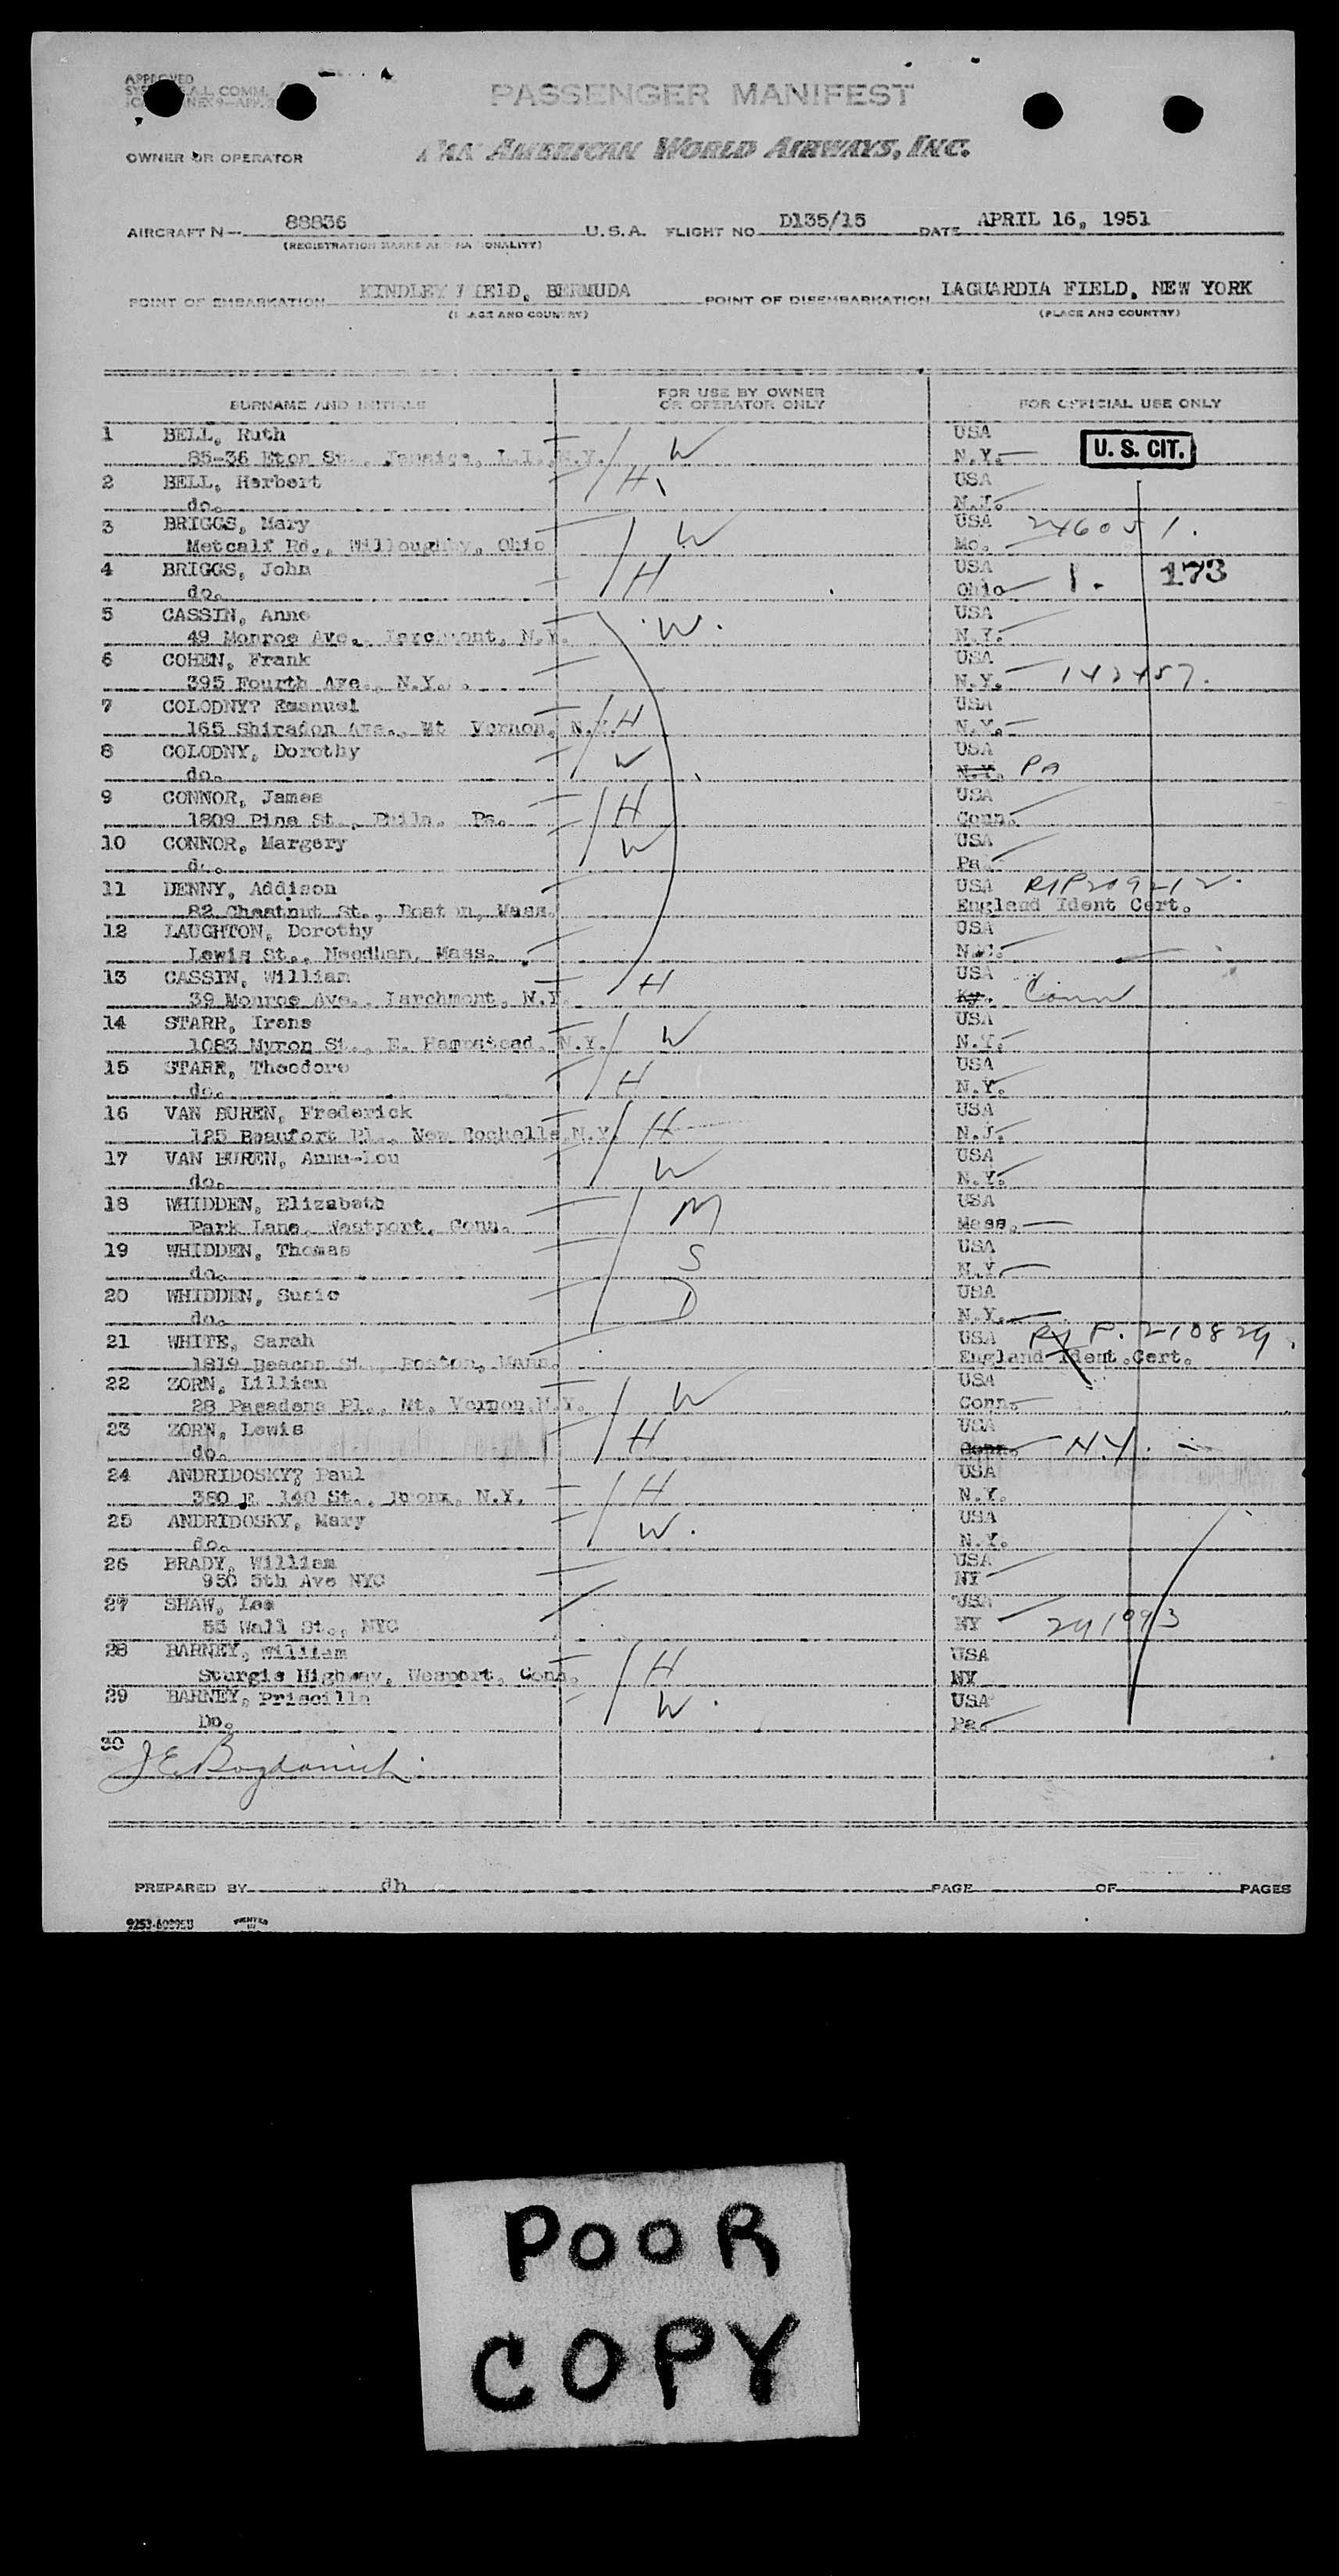 APPROVED
PASSENGER MANIFEST
OWNER OR OPERATOR
PAN AMERICAN WORLD AIRWAYS, INC.
AIRCRAFT N— 88836 U.S.A. FLIGHT NO D135/15 DATE APRIL 16, 1951
(REGISTRATION MARKS AND NATIONALITY)
POINT OF EMBARKATION KINDLEY FIELD, BERMUDA POINT OF DISEMBARKATION LAGUARDIA FIELD, NEW YORK
(PLACE AND COUNTRY) (PLACE AND COUNTRY)
SURNAME AND INITIALS FOR USE BY OWNER OR OPERATOR ONLY FOR OFFICIAL USE ONLY
1 BELL, Ruth W USA U. S. CIT.
85-36 Eton St., Jamaica, L.I., N.Y. N.Y.
2 BELL, Herbert H USA
do. N.J.
3 BRIGGS, Mary W USA 246051.
Metcalf Rd., Willoughby, Ohio Mo.
4 BRIGGS, John H USA 1. 173
do. Ohio
5 CASSIN, Anne W. USA
49 Monroe Ave., Larchmont, N.Y. N.Y.
6 COHEN, Frank USA
395 Fourth Ave., N.Y. N.Y. 142457.
7 COLODNY? Emanuel H USA
165 Ave., Mt Vernon, N.Y. N.Y.
8 COLODNY, Dorothy W USA
do. N.Y. PA
9 CONNOR, James H USA
1809 Pine St., Phila. Pa. Conn.
10 CONNOR, Margery W USA
do. Pa.
11 DENNY, Addison USA 209212.
82 Chestnut St., Boston, Mass. England Ident Cert.
12 LAUGHTON, Dorothy USA
Lewis St., Needham, Mass. N.C.
13 CASSIN, William H USA
39 Monroe Ave., Larchmont, N.Y. Ky. Conn
14 STARR, Irene W USA
1083 Myron St., E. Hempstead, N.Y. N.Y.
15 STARR, Theodore H USA
do. N.Y.
16 VAN BUREN, Frederick H USA
125 Beaufort Pl., New Rochelle, N.Y. N.J.
17 VAN BUREN, Anna-Lou W USA
do. N.Y.
18 WHIDDEN, Elizabeth M USA
Park Lane, Westport, Conn. Mass.
19 WHIDDEN, Thomas S USA
do. N.Y.
20 WHIDDEN, Susie D USA
do. N.Y.
21 WHITE, Sarah USA P. 210829
1819 Beacon St., Boston, Mass. England Ident.Cert.
22 ZORN, Lillian W USA
28 Pasadena Pl., Mt. Vernon, N.Y. Conn.
23 ZORN, Lewis H USA
do. Conn. N.Y.
24 ANDRIDOSKY? Paul H USA
380 E 140 St., Bronx, N.Y. N.Y.
25 ANDRIDOSKY, Mary W. USA
do. N.Y.
26 BRADY, William USA
950 5th Ave NYC NY
27 SHAW, Lee USA
55 Wall St., NYC NY 241093
28 BARNEY, William H USA
Sturgis Highway, Wesport, Conn. NY
29 BARNEY, Priscilla W. USA
Do. Pa.
30
PREPARED BY dh PAGE OF PAGES
POOR
COPY